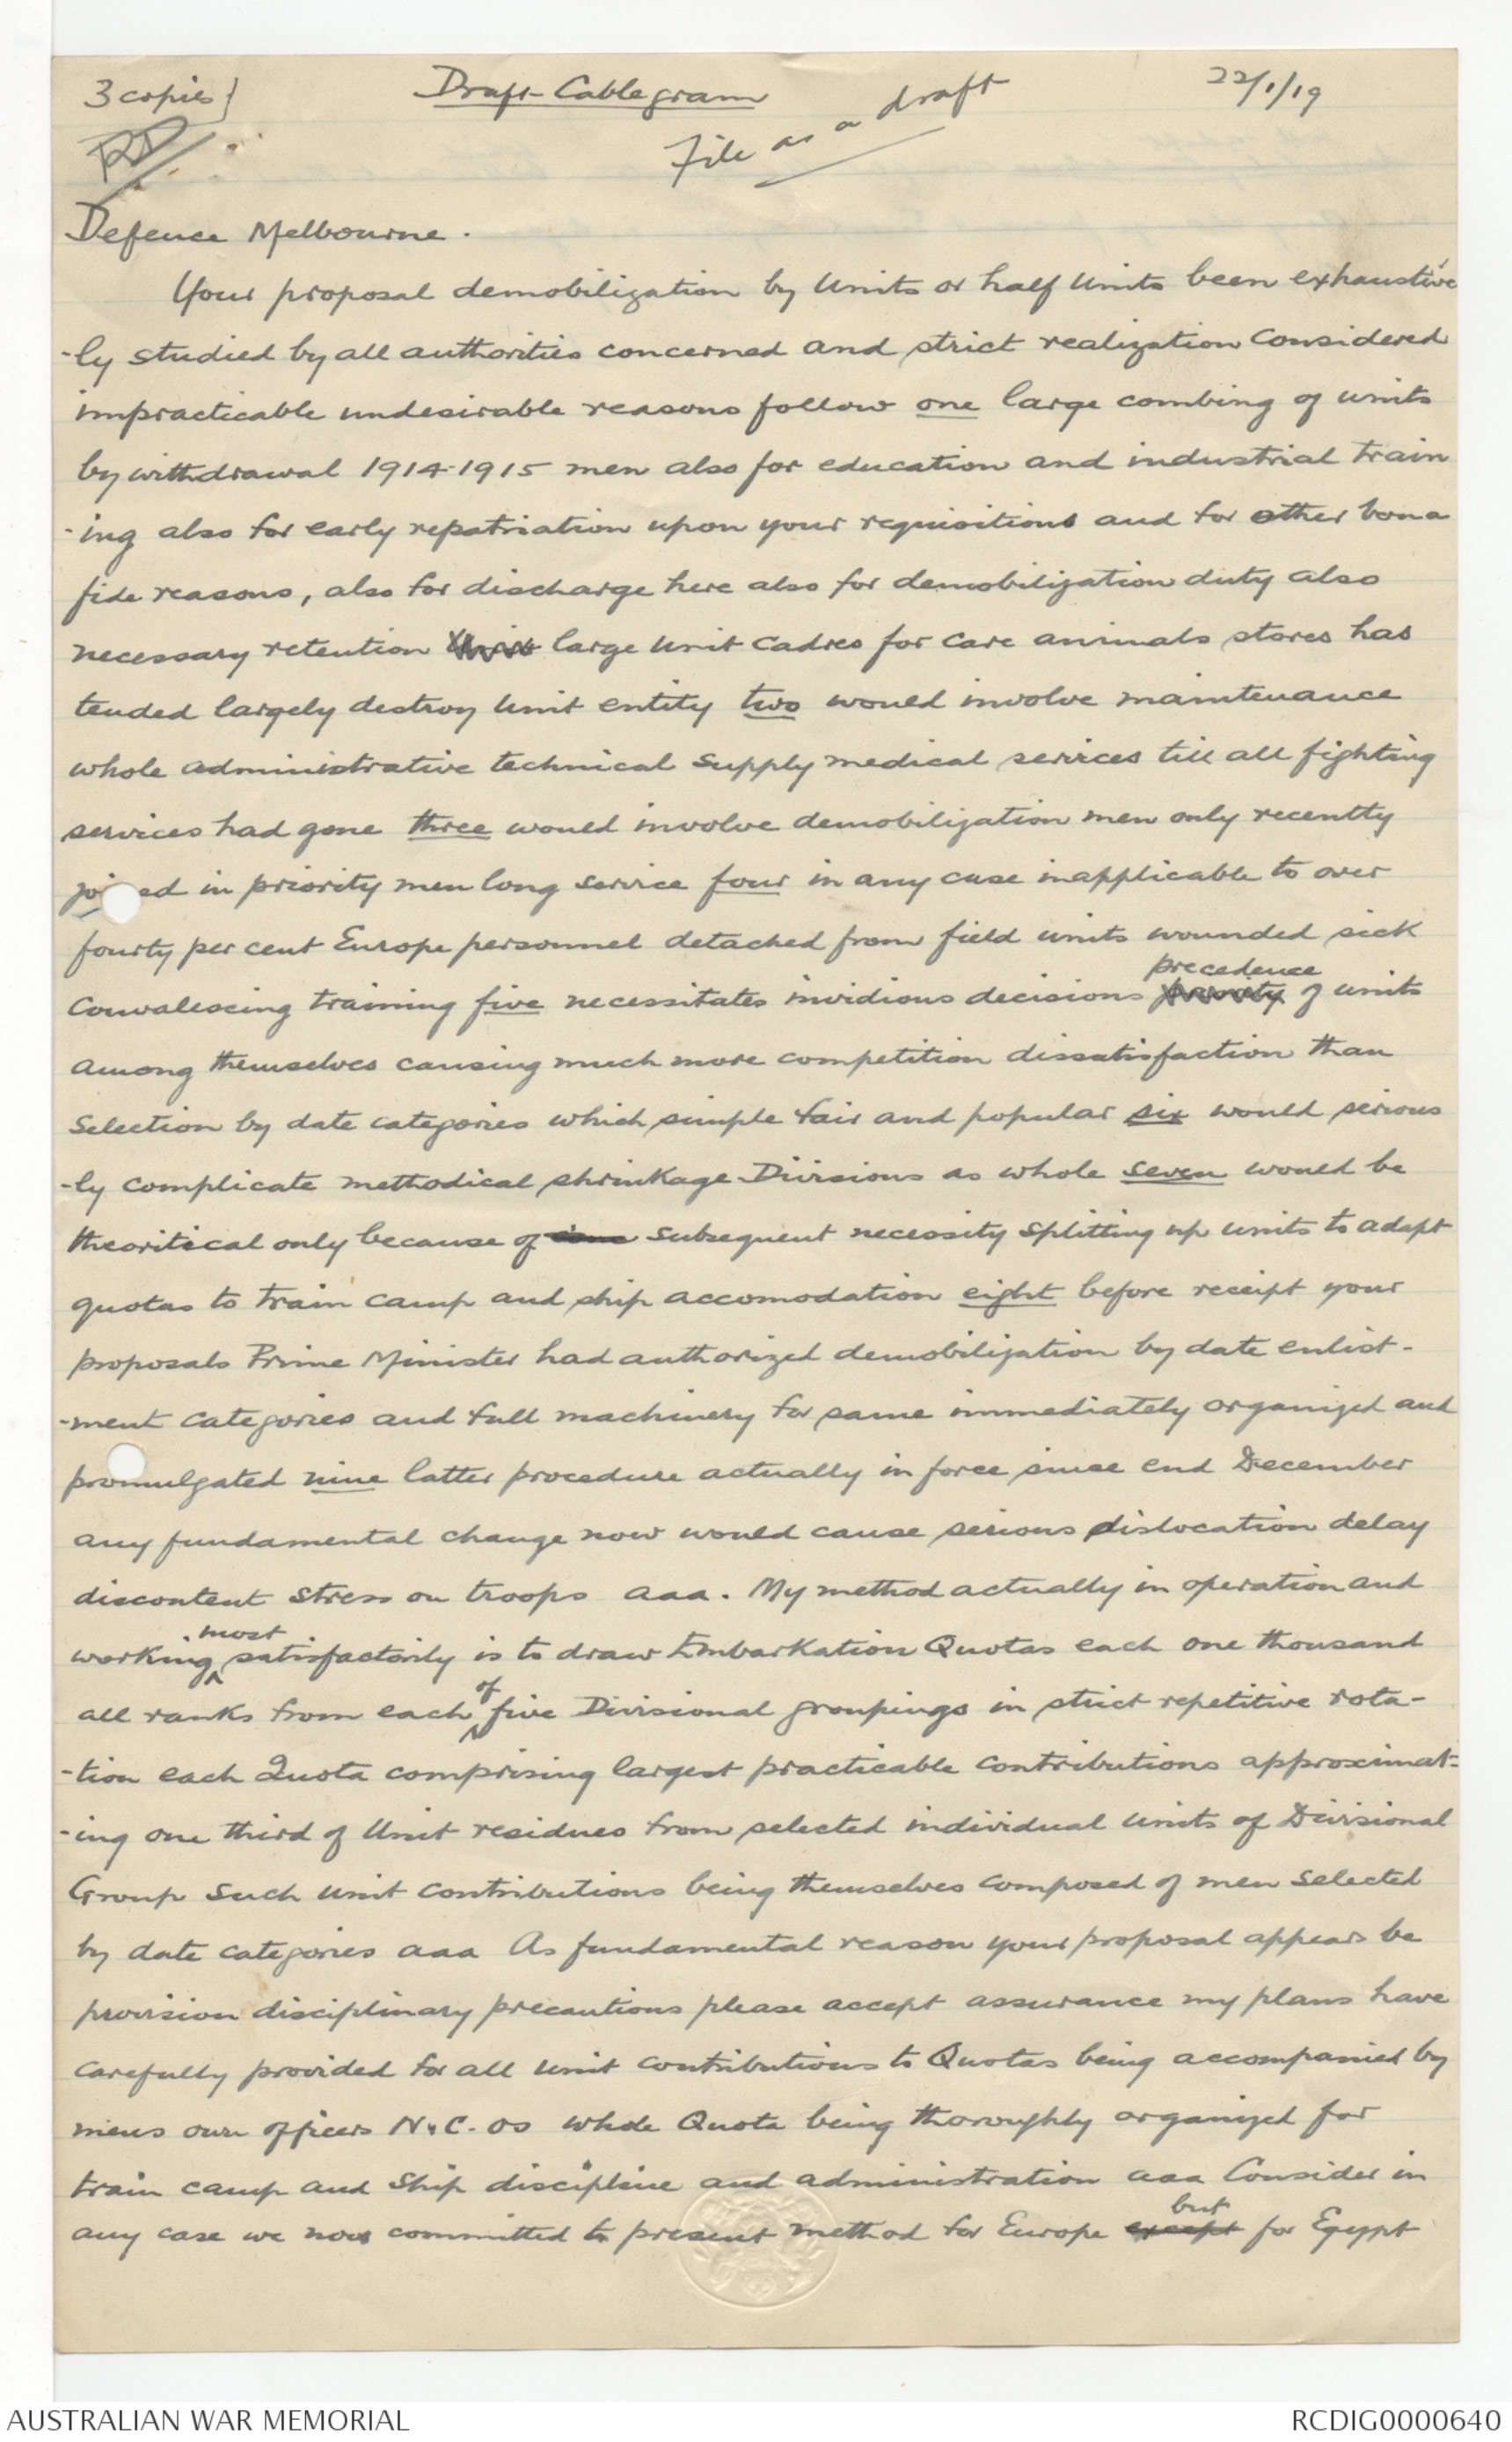 3 copies}
Draft Cablegram
22/1/19
File as a draft
Defence Melbourne.
Your proposal demobilization by Units or half Units been exhaustive
-ly studied by all authorities concerned and strict realization considered
impracticable undesirable reasons follow one large combing of units
by withdrawal 1914-1915 men also for education and industrial train
-ing also for early repatriation upon your requisitions and for other bona
fide reasons, also for discharge here also for demobilization duty also
necessary retention Unit large Unit Cadres for care animals stores has
tended largely destroy Unit entity two would involve maintenance
whole administrative technical supply medical services till all fighting
services had gone three would involve demobilization men only recently
joined in priority men long service four in any case inapplicable to over
fourty per cent Europe personnel detached from field units wounded sick
precedence
Convalescing training five necessitates invidious decisions priority of units
among themselves causing much more competition dissatisfaction than
selection by date categories which simple fair and popular six would serious
-ly complicate methodical shrinkage Divisions as whole seven would be
theoritical only because of subsequent necessity splitting up units to adapt
quotas to train camp and ship accomodation eight before receipt your
proposals Prime Minister had authorized demobilization by date enlist-
-ment categories and full machinery for same immediately organized and
promulgated nine latter procedure actually in force since end December
any fundamental change now would cause serious dislocation delay
discontent stress on troops aaa. My method actually in operation and
most
working satisfactorily is to draw Embarkation Quotas each one thousand
of
all ranks from each five Divisional groupings in strict repetitive rota-
-tion each Quota comprising largest practicable contributions approximat-
-ing one third of Unit residues from selected individual Units of Divisional
Group Such Unit contributions being themselves composed of men selected
by date categories aaa As fundamental reason your proposal appears be
provision disciplinary precautions please accept assurance my plans have
carefully provided for all Unit contributions to Quotas being accompanied by
mens own officers N.C.Os whole Quota being thoroughly organized for
train camp and ship discipline and administration aaa Consider in
but
any case we now committed to present method for Europe except for Egypt
AUSTRALIAN WAR MEMORIAL
RCDIG0000640